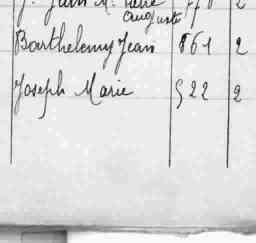 J. Jean M. René
Auguste
Barthelemy Jean 861 2
Joseph Marie 522 2